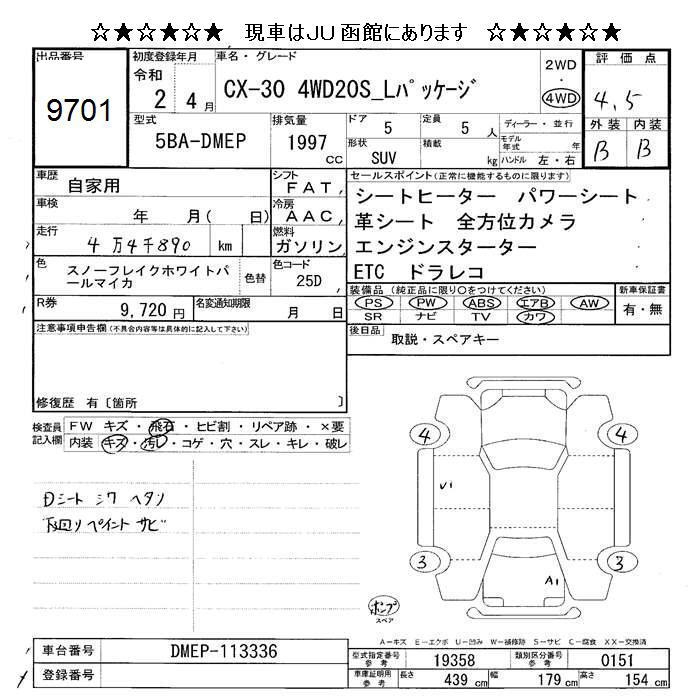 ☆★☆★☆★ 現車はJU函館にあります ☆★☆★☆★
出品番号
9701
初度登録年月
令和
2 年 4 月
車名・グレード
CX-30 4WD20S_Lパッケージ
2WD
・
4WD
評価点
4.5
外装 内装
B B
型式
5BA-DMEP
排気量
1997 cc
ドア 5
定員 5 人
形状 SUV
積載 kg
ディーラー・並行
モデル年式 年
ハンドル 左・右
車歴 自家用
シフト FAT
車検 年 月( 日)
冷房 AAC
走行 4万4千890 km
燃料 ガソリン
色 スノーフレイクホワイトパールマイカ
色替
色コード 25D
R券 9,720円
名変通知期限 月 日
セールスポイント(正常に機能するものに限ります)
シートヒーター パワーシート
革シート 全方位カメラ
エンジンスターター
ETC ドラレコ
装備品 (純正品に限り○をつけてください)
PS PW ABS エアB AW
SR ナビ TV カワ
新車保証書
有・無
後日品 取説・スペアキー
注意事項申告欄(不具合内容等は具体的に記入して下さい)
修復歴 有〔箇所 〕
検査員記入欄
FW キズ・飛石・ヒビ割・リペア跡・×要
内装 キズ・汚レ・コゲ・穴・スレ・キレ・破レ
Dシート シワ ヘタリ
下回り ペイント サビ
4 4
U1
3 3
A1
ポンプ
スペア
A-キズ E-エクボ U-凹み W-補修跡 S-サビ C-腐食 XX-交換済
車台番号 DMEP-113336
登録番号
型式指定番号 参考 19358
類別区分番号 参考 0151
車庫証明用 参考 長さ 439 cm 幅 179 cm 高さ 154 cm